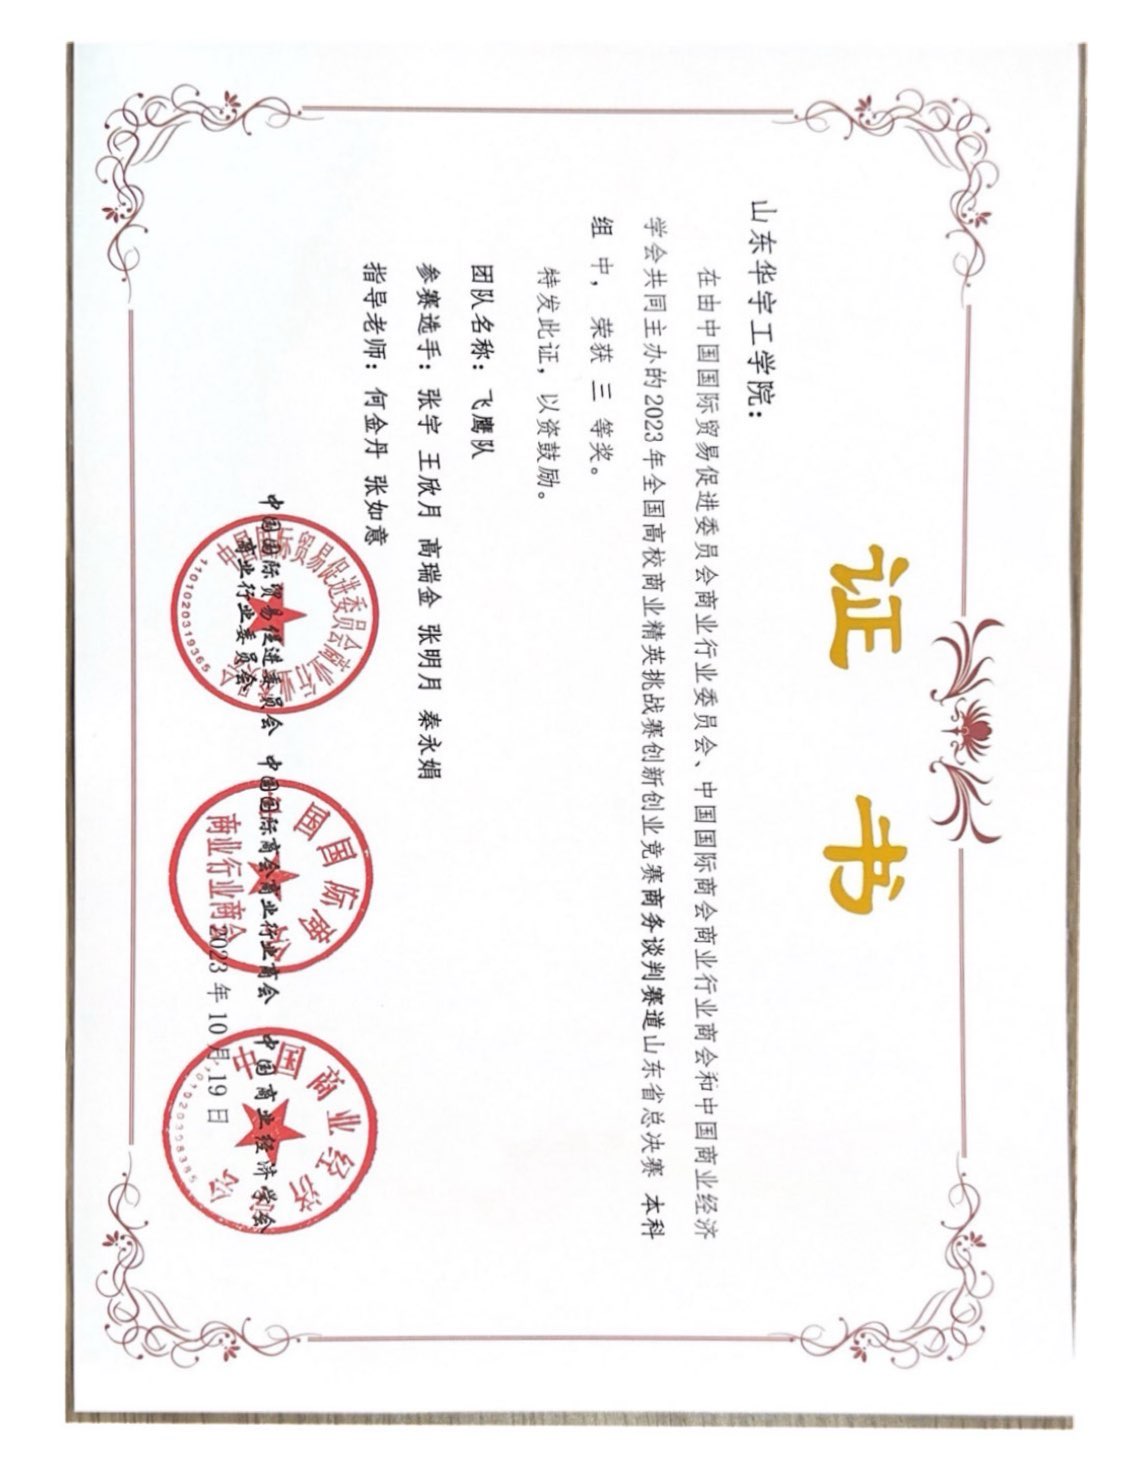 证 书
山东华宇工学院：
在由中国国际贸易促进委员会商业行业委员会、中国国际商会商业行业商会和中国商业经济
学会共同主办的2023年全国高校商业精英挑战赛创新创业竞赛商务谈判赛道山东省总决赛 本科
组 中， 荣获 三 等奖。
特发此证，以资鼓励。
团队名称：飞鹰队
参赛选手：张宇 王欣月 高瑞金 张明月 秦永娟
指导老师：何金丹 张如意
中国国际贸易促进委员会 中国国际商会商业行业商会 中国商业经济学会
商业行业委员会
2023年10月19日
中国国际贸易促进委员会商业行业委员会
1101020319365
中国国际商会
商业行业商会
中国商业经济学会